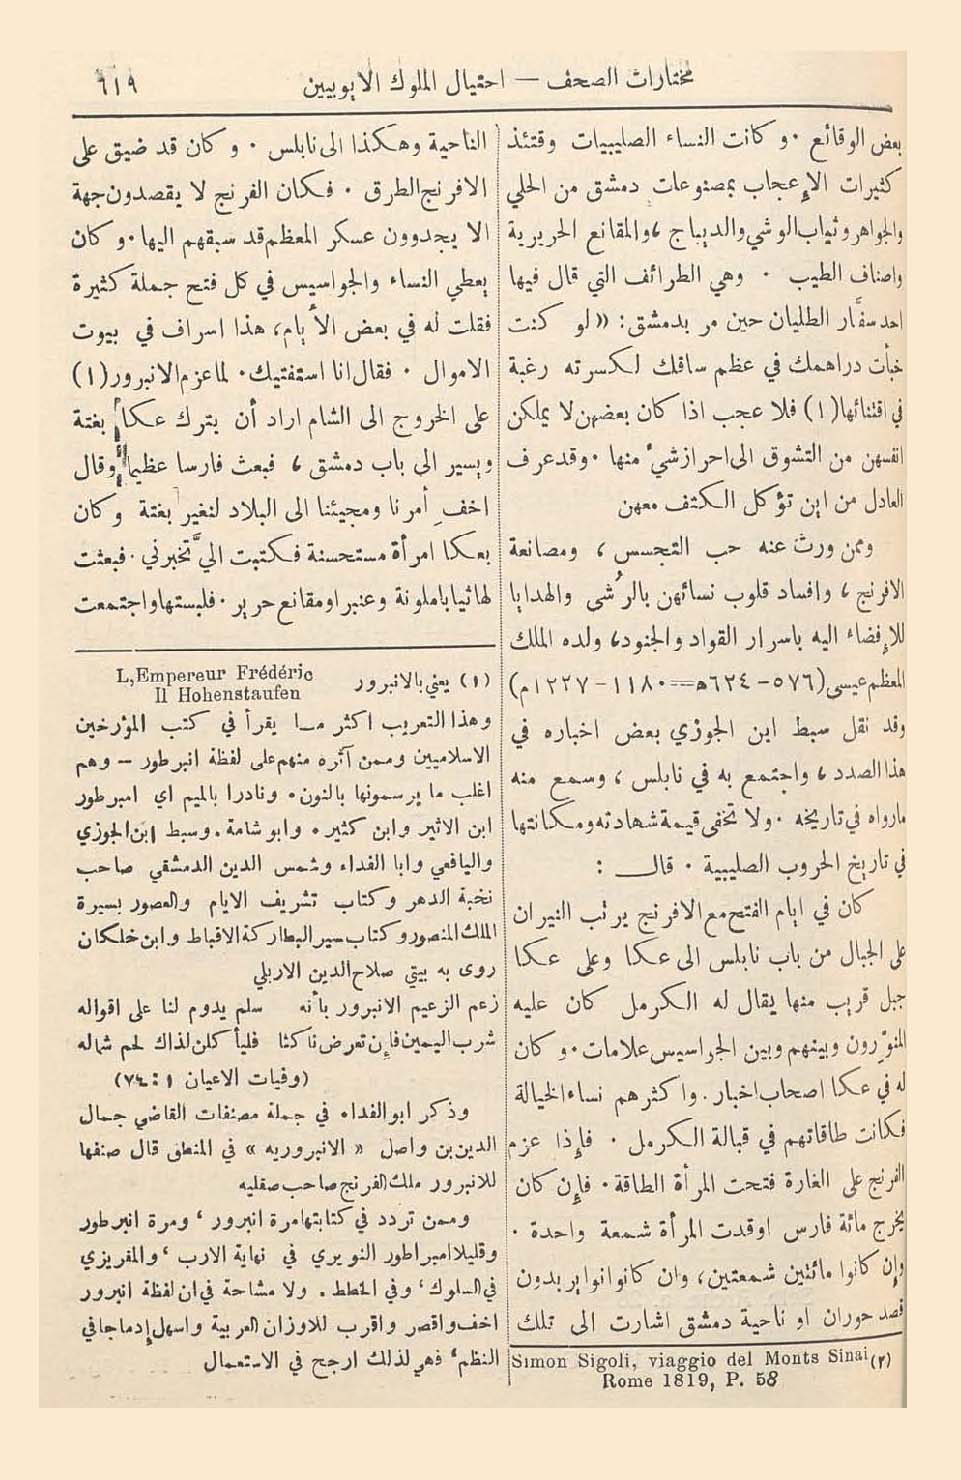 مختارات الصحف — احتيال الملوك الايوبيين
٦١٩
بعض الوقائع . و كانت النساء الصليبيات وقتئذ
كثيرات الإعجاب بمصنوعات دمشق من الحلي
والجواهر وثياب الوشي والديباج ، والمقانع الحريرية
واصناف الطيب . وهي الطرائف التي قال فيها
احد سفَّار الطليان حين مر بدمشق: «لو كنت
خبأت دراهمك في عظم ساقك لكسرته رغبة
في اقتنائها (١) فلا عجب اذا كان بعضهن لا يملكن
انفسهن من التشوق الى احراز شيء منها . وقد عرف
العادل من اين تؤكل الكتف معهن
وممن ورث عنه حب التجسس ، ومصانعة
الافرنج ، وافساد قلوب نسائهن بالرُشى والهدايا
للإفضاء اليه باسرار القواد والجنود ، ولده الملك
المعظم عيسى (٥٧٦ – ٦٢٤ ه == ١١٨٠ – ١٢٢٧ م)
وقد نقل سبط ابن الجوزي بعض اخباره في
هذا الصدد ، واجتمع به في نابلس ، وسمع منه
مارواه في تاريخه . ولا تخفى قيمة شهادته ومكانتها
في تاريخ الحروب الصليبية . قال :
كان في ايام الفتح مع الافرنج يرتب النيران
على الجبال من باب نابلس الى عكا وعلى عكا
جبل قريب منها يقال له الكرمل كان عليه
المنوِّرون وبينهم وبين الجراسيس علامات . و كان
له في عكا اصحاب اخبار . واكثرهم نساء الخيالة
فكانت طاقاتهم في قبالة الكرمل . فإذا عزم
الفرنج على الغارة فتحت المرأة الطاقة . فإن كان
يخرج مائة فارس اوقدت المرأة شمعة واحدة .
وإن كانوا مائتين شمعتين ، وان كانوا يريدون
قصد حوران او ناحية دمشق اشارت الى تلك
(٢) Simon Sigoli, viaggio del Monts Sinai
Rome 1819, P. 58
الناحية وهكذا الى نابلس . و كان قد ضيق على
الافرنج الطرق . فكان الفرنج لا يقصدون جهة
الا يجدوون عسكر المعظم قد سبقهم اليها . و كان
يعطي النساء والجواسيس في كل فتح جملة كثيرة
فقلت له في بعض الأيام ، هذا اسراف في بيوت
الاموال . فقال انا استفتيك . لما عزم الانبرور (١)
على الخروج الى الشام اراد أن يترك عكا بغتة
ويسير الى باب دمشق ، فبعث فارسا عظيما وقال
اخف أمرنا ومجيئنا الى البلاد لنغير بغتة وكان
بعكا امرأة مستحسنة فكتبت اليَّ تخبرني . فبعثت
لها ثيابا ملونة وعنبرا ومقانع حرير . فلبستها واجتمعت
(١) يعني بالانبرور L,Empereur Frédéric
II Hohenstaufen
وهذا التعريب اكثر مـا يقرأ في كتب المؤرخين
الاسلاميين وممن آثره منهم على لفظة انبرطور – وهم
اغلب ما يرسمونها بالنون . ونادرا بالميم اي امبرطور
ابن الاثير وابن كثير . وابو شامة . وسبط ابن الجوزي
واليافعي وابا الفداء وشمس الدين الدمشقي صاحب
نخبة الدهر وكتاب تشريف الايام والعصور بسيرة
الملك المنصور وكتاب سير البطاركة الاقباط وابن خلكان
روى به بيتي صلاح الدين الاربلي
زعم الزعيم الانبرور بأنه سلم يدوم لنا على اقواله
شرب اليمين فإن تعرض ناكثا فليأكلن لذاك لحم شماله
(وفيات الاعيان ١ : ٧٤)
وذكر ابو الفداء في جملة مصنفات القاضي جمال
الدين بن واصل « الانبروريه » في المنطق قال صنفها
للانبرور ملك الفرنج صاحب صقليه
وممن تردد في كتابتها مرة انبرور ، ومرة انبرطور
وقليلا امبراطور النويري في نهاية الارب ، والمقريزي
في السلوك ، وفي الخطط . ولا مشاحة في ان لفظة انبرور
اخف واقصر واقرب للاوزان العربية واسهل إدماجا في
النظم ، فهي لذلك ارجح في الاستعمال